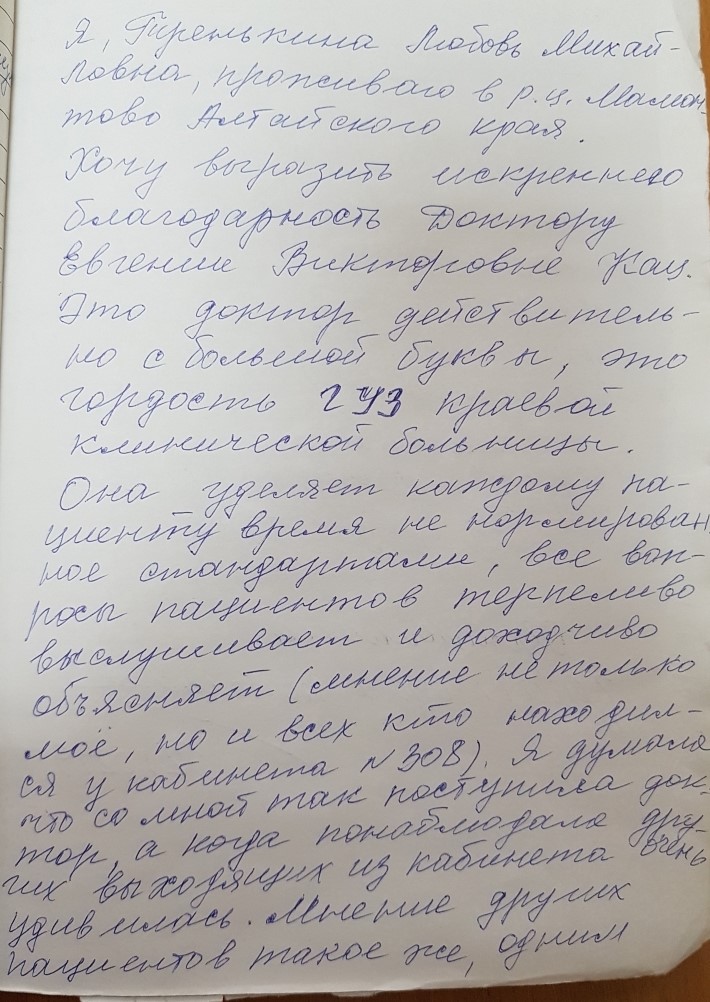 Я, Тренькина Любовь Михай-
ловна, проживаю в р.ц. Мамон-
тово Алтайского края.
Хочу выразить искреннею
благодарность Доктору
Евгение Викторовне Кац.
Это доктор действитель-
но с большой буквы, это
гордость ГУЗ краевой
клинической больницы.
Она уделяет каждому па-
циенту время не нормирован
ное стандартами, все воп-
росы пациентов терпеливо
выслушивает и доходчиво
объясняет (мнение не только
моё, но и всех кто находил-
ся у кабинета №308). Я думала
что со мной так поступила док-
тор, а когда понаблюдала дру-
гих выходящих из кабинета очень
удивилась. Мнение других
пациентов такое же, одним